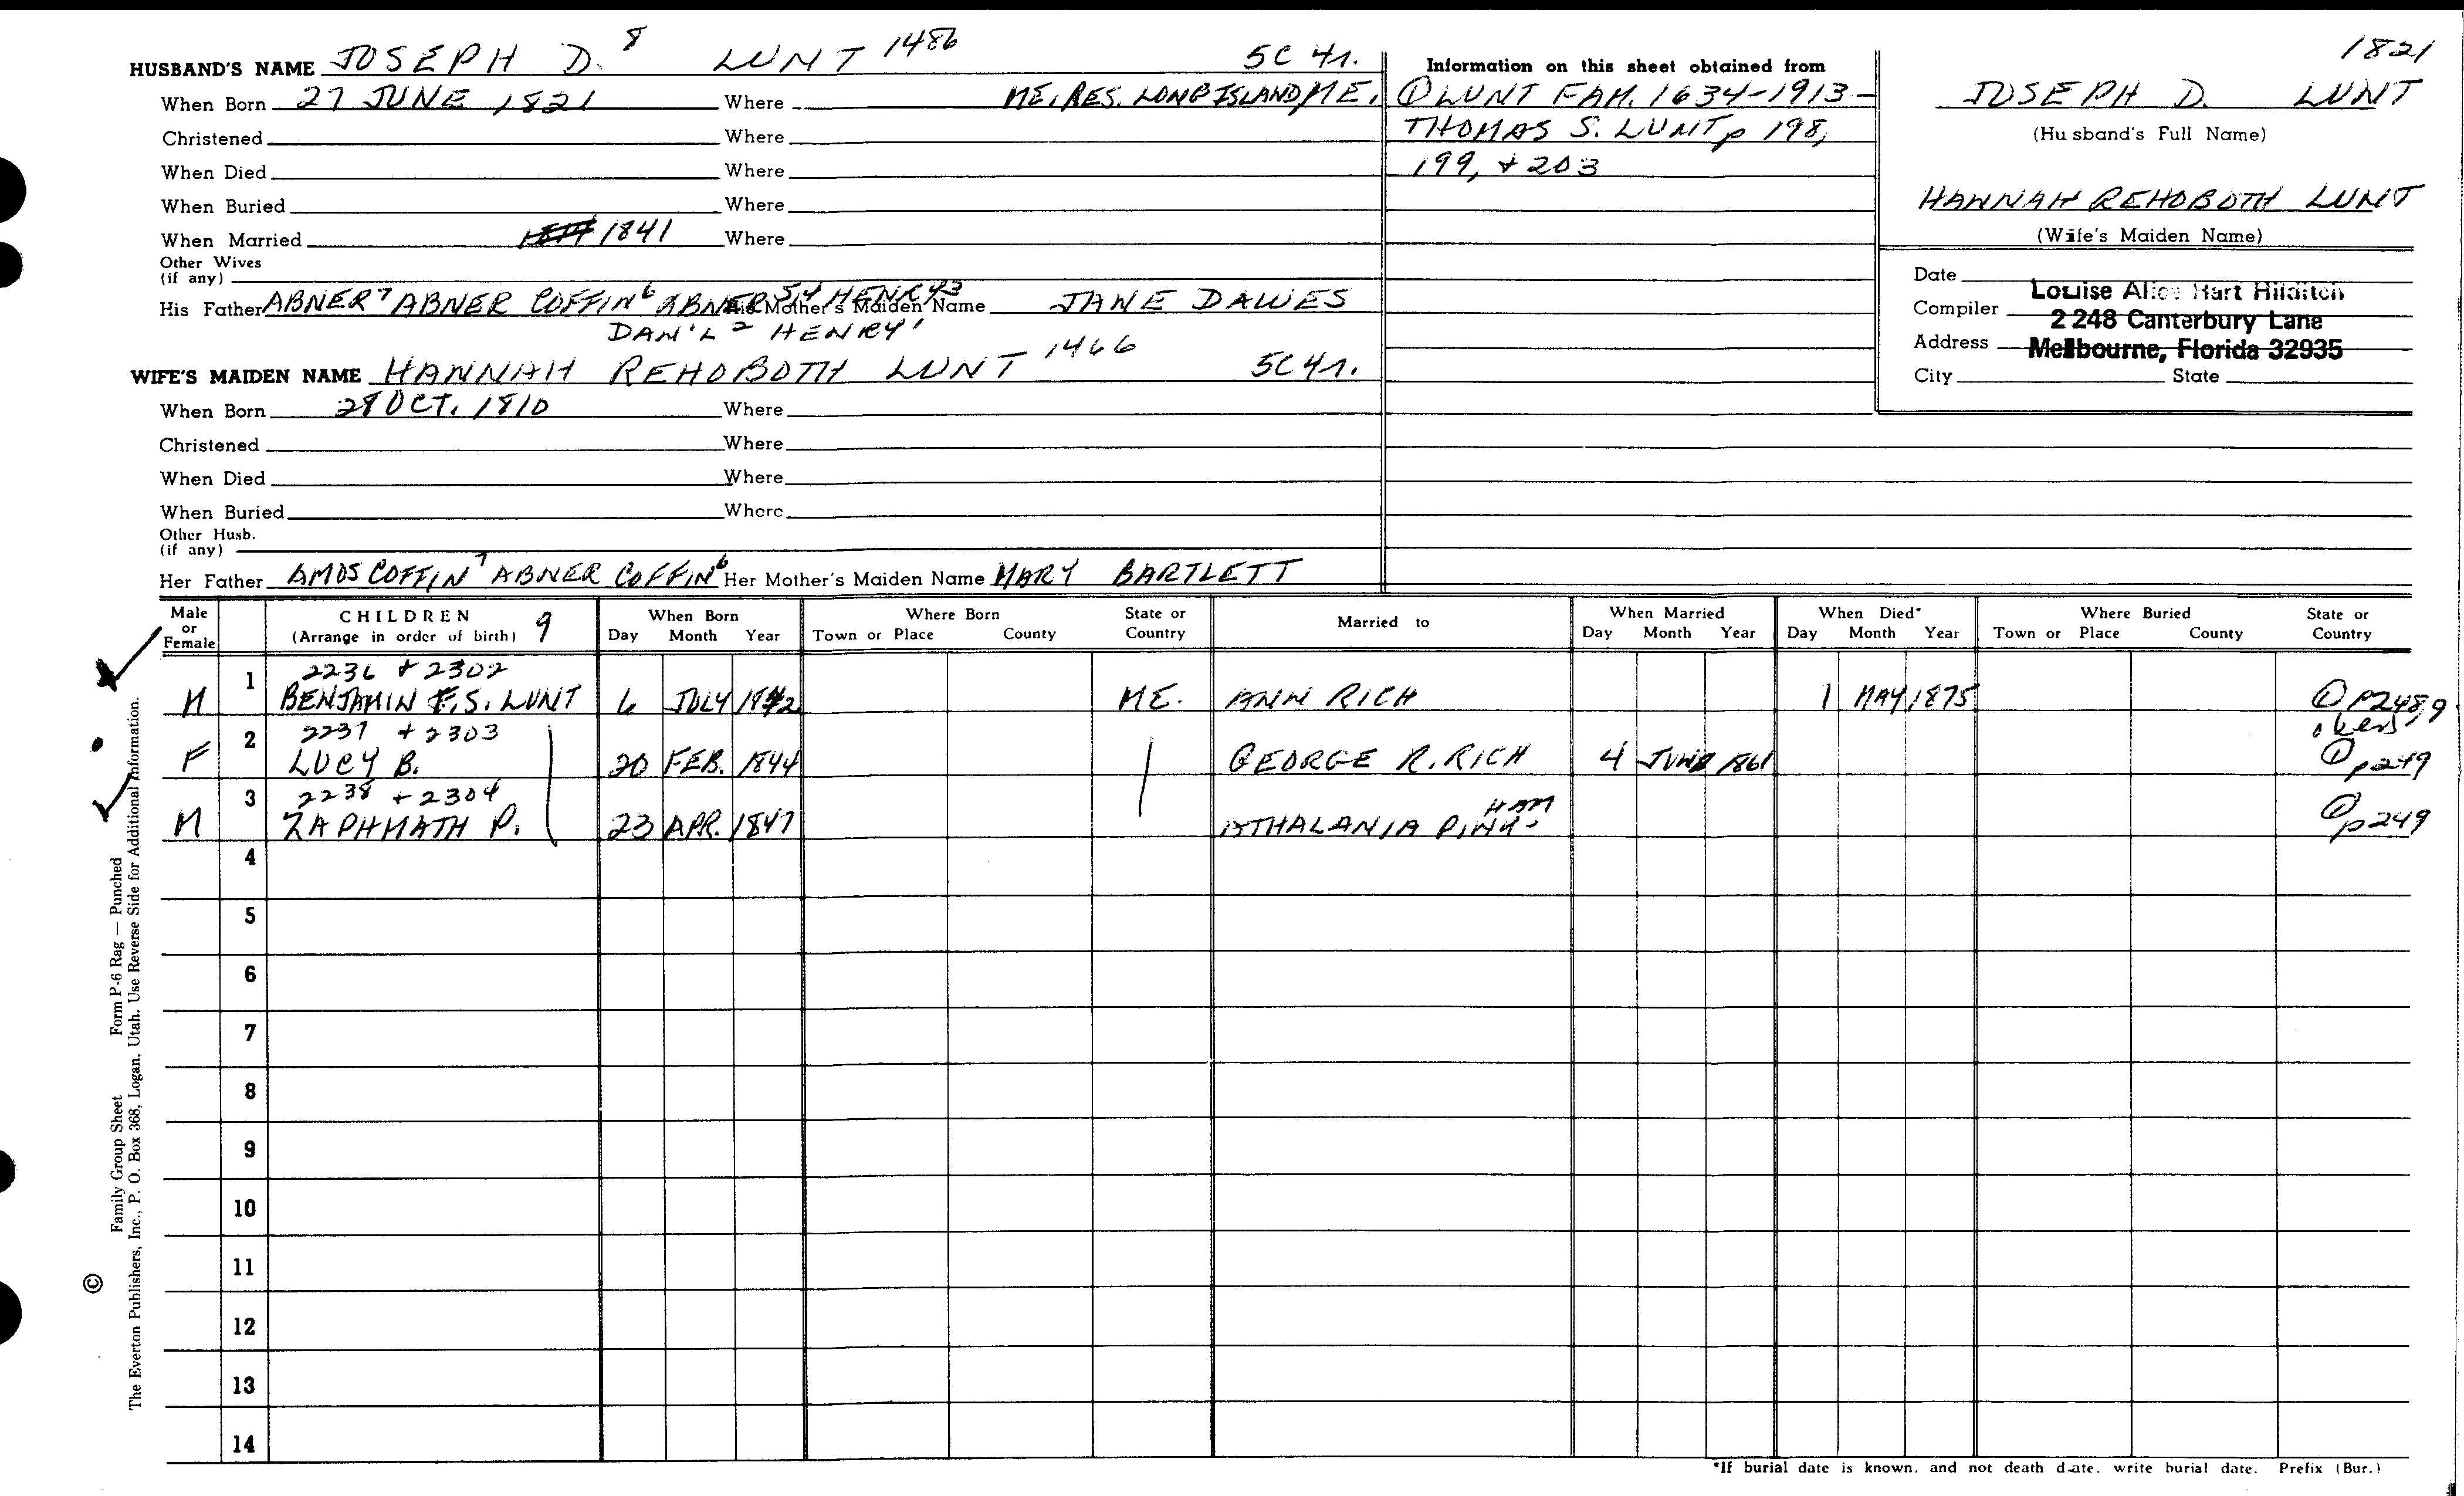 1821
HUSBAND'S NAME JOSEPH D. 8 LUNT 1486 5C 4r.
When Born 27 JUNE 1821 Where ME, RES. LONG ISLAND, ME.
Christened Where
When Died Where
When Buried Where
When Married 1841 Where
Other Wives
(if any)
His Father ABNER 7 ABNER COFFIN 6 ABNER 5,4 HENRY 3 His Mother's Maiden Name JANE DAWES
DAN'L 2 HENRY 1
WIFE'S MAIDEN NAME HANNAH REHOBOTH LUNT 1466 5C4r.
When Born 28 OCT. 1810 Where
Christened Where
When Died Where
When Buried Where
Other Husb.
(if any)
Her Father AMOS COFFIN 7 ABNER COFFIN 6 Her Mother's Maiden Name MARY BARTLETT
Information on this sheet obtained from
① LUNT FAM. 1634-1913-
THOMAS S. LUNT p 198,
199, + 203
JOSEPH D. LUNT
(Husband's Full Name)
HANNAH REHOBOTH LUNT
(Wife's Maiden Name)
Date
Compiler Louise Alice Hart Hilditch
2248 Canterbury Lane
Address Melbourne, Florida 32935
City State
Male or Female CHILDREN 9 (Arrange in order of birth) When Born Day Month Year Where Born Town or Place County State or Country Married to When Married Day Month Year When Died* Day Month Year Where Buried Town or Place County State or Country
2236 + 2302
M 1 BENJAMIN F.S. LUNT 6 JULY 1842 ME. ANN RICH 1 MAY 1875 ① P248,9
2237 + 2303
F 2 LUCY B. 20 FEB. 1844 GEORGE R. RICH 4 JUNE 1861 ① p249
2238 + 2304
M 3 ZAPHNATH P. 23 APR. 1847 ATHALANIA PINK-HAM ① p249
4
5
6
7
8
9
10
11
12
13
14
*If burial date is known, and not death date, write burial date. Prefix (Bur.)
© Family Group Sheet Form P-6 Rag — Punched
The Everton Publishers, Inc., P. O. Box 368, Logan, Utah. Use Reverse Side for Additional Information.